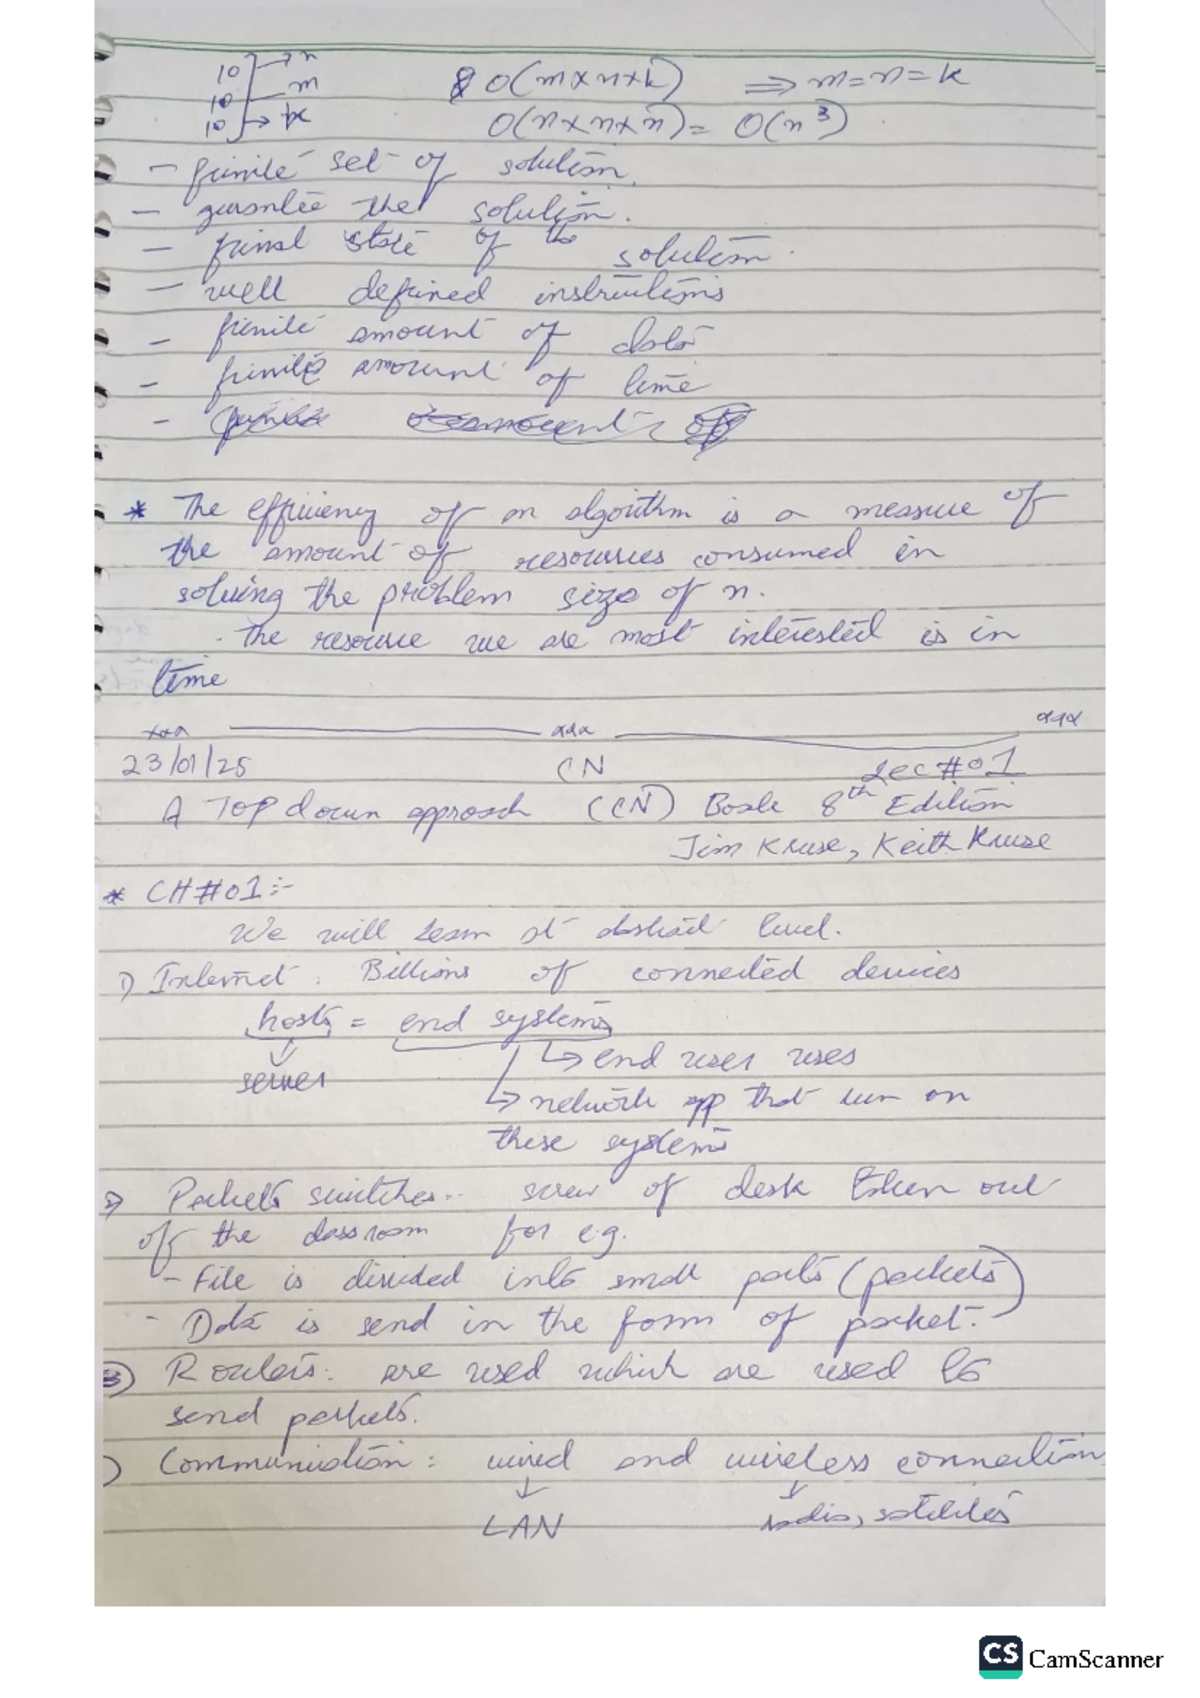 10 → n
10 — m
10 → k
O(m×n×k) ⇒ m=n=k
O(n×n×n) = O(n³)
- finite set of solution.
- gurantee the solution.
- final state of the solution.
- well defined instructions
- finite amount of data
- finite amount of time
-
* The efficiency of an algorithm is a measure of
the amount of resources consumed in
solving the problem size of n.
. The resource we are most interested is in
time
23/01/25 CN Lec#01
A Top down approach (CN) Book 8th Edition
Jim Kruse, Keith Kruse
* CH#01:-
We will learn at abstract level.
1) Internet: Billions of connected devices
hosts = end systems
↳ end user uses
server
↳ network app that run on
these systems
Packets switches.. screw of desk taken out
of the classroom for e.g.
- File is divided into small parts (packets)
- Data is send in the form of packet.
3) Routers: are used which are used to
send packets.
) Communication: wired and wireless connection
LAN radio, satelites
CS CamScanner